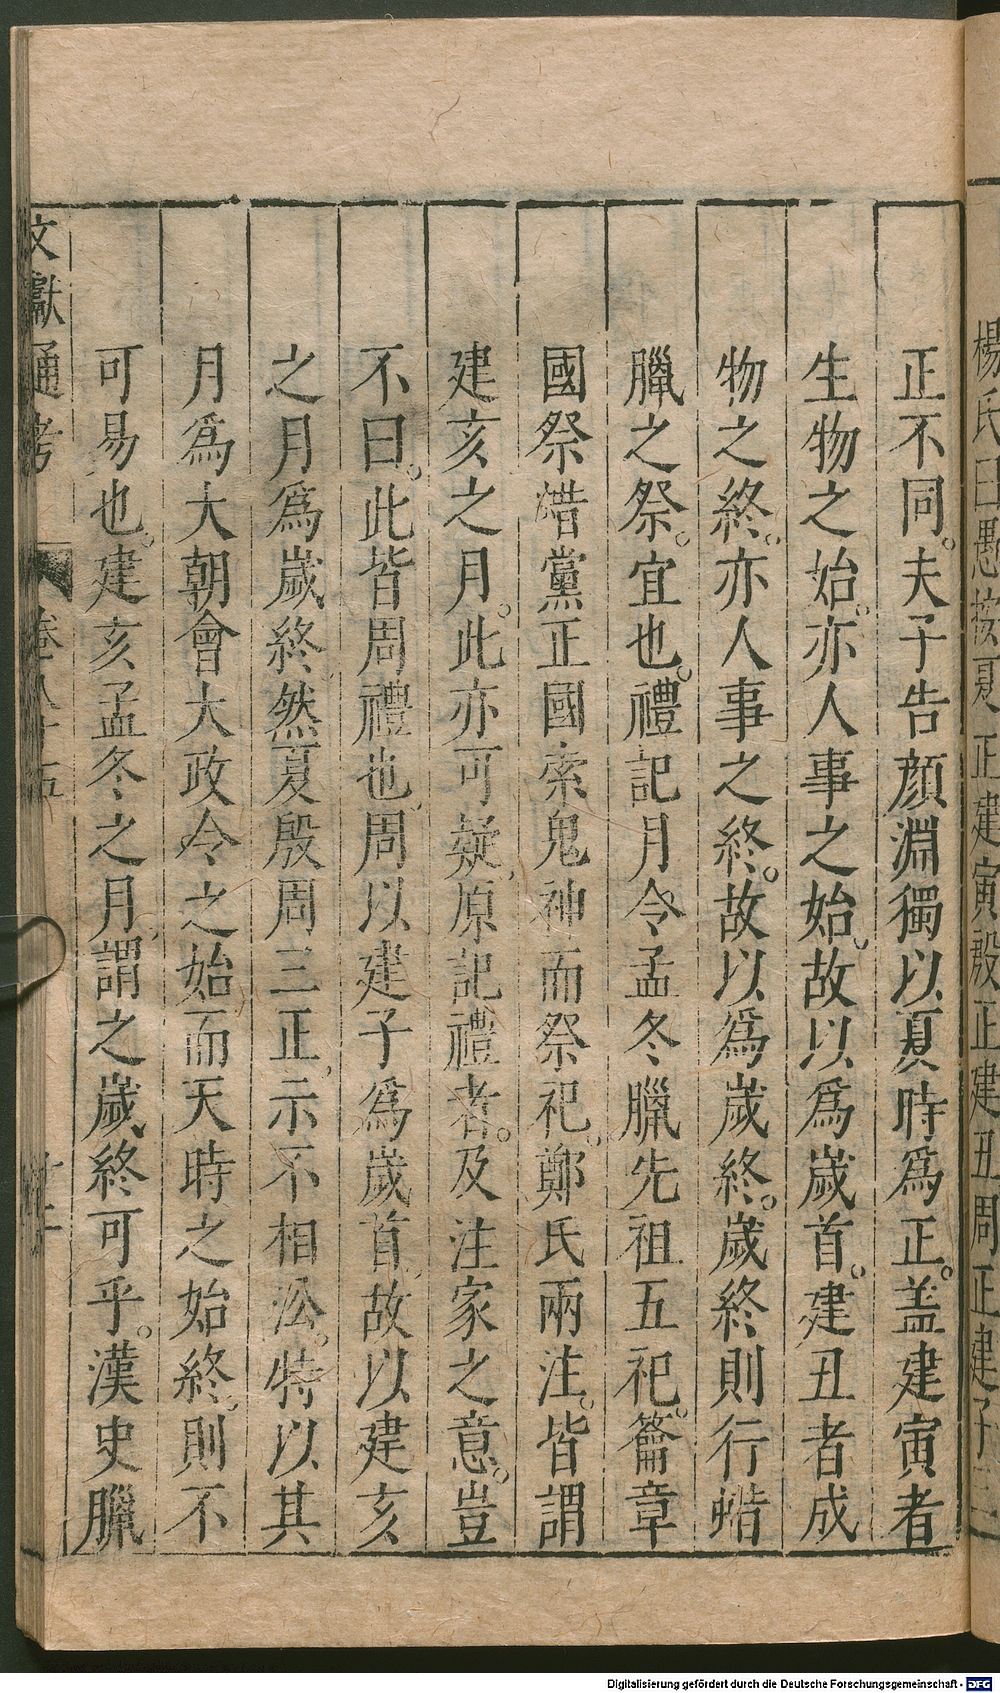 楊氏曰愚按夏正建寅殷正建丑周正建子三
正不同。夫子告顔淵獨以夏時爲正。蓋建寅者
生物之始。亦人事之始。故以爲歲首。建丑者成
物之終。亦人事之終。故以爲歲終。歲終則行蜡
臘之祭。宜也。禮記月令孟冬臘先祖五祀。籥章
國祭蜡黨正國索鬼神而祭祀。鄭氏兩注。皆謂
建亥之月。此亦可疑、原記禮者。及注家之意。豈
不曰。此皆周禮也、周以建子爲歲首、故以建亥
之月爲歲終、然夏殷周三正、示不相㳂。特以其
月爲大朝會大政令之始、而天時之始終、則不
可易也。建亥孟冬之月、謂之歲終可乎。漢史臘
文獻通考 卷八十五
Digitalisierung gefördert durch die Deutsche Forschungsgemeinschaft - DFG